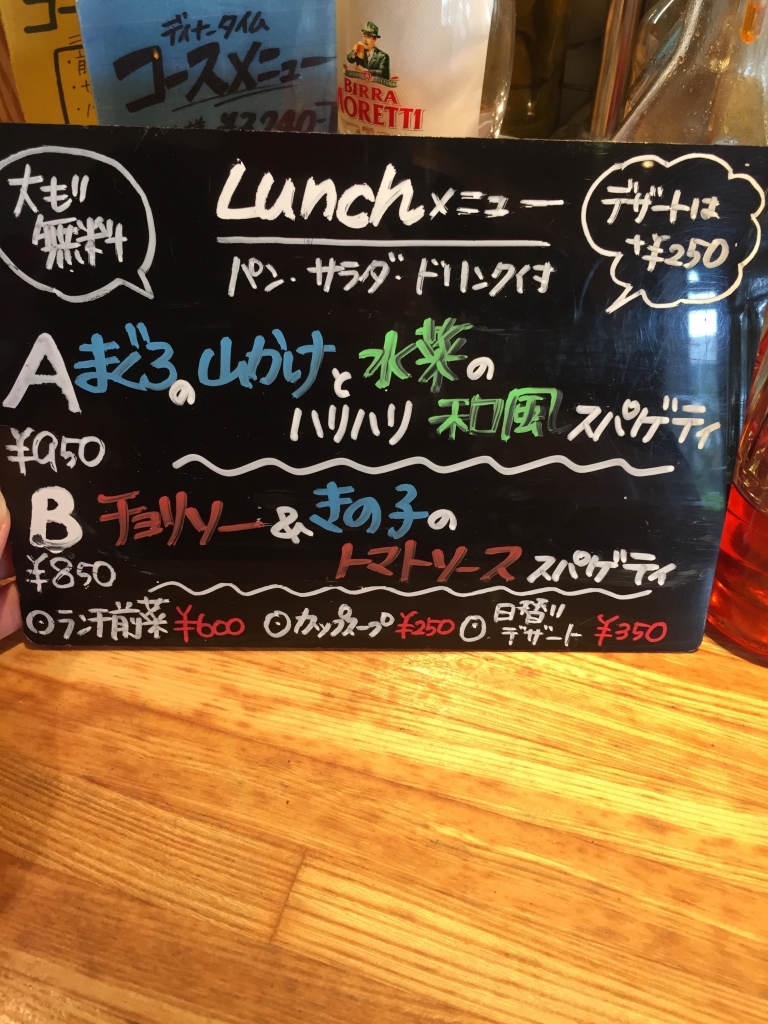 ディナータイム
コースメニュー
BIRRA
MORETTI
大もり
無料
Lunchメニュー
デザートは
+¥250
パン・サラダ・ドリンク付
Aまぐろの山かけと水菜の
ハリハリ和風スパゲティ
¥950
Bチョリソー&きの子の
トマトソーススパゲティ
¥850
⦿ランチ前菜¥600 ⦿カップスープ¥250 ⦿日替りデザート¥350